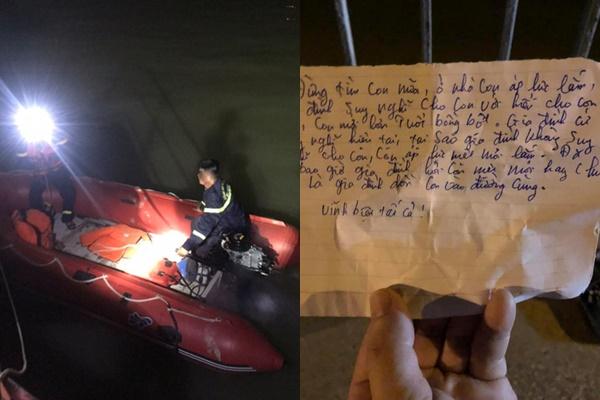 Đừng tìm con nữa, ở nhà con áp lực lắm,
đình suy nghĩ cho con và hiểu cho con
, con mới lớn tuổi bồng bột. Gia đình cứ
nghĩ hiện tại, tại sao gia đình không suy
cho con, con áp lực mệt mỏi lắm.
bao giờ gia đình hỏi con mệt mỏi hay
là gia đình dồn con vào đường cùng.
Vĩnh biệt tất cả!